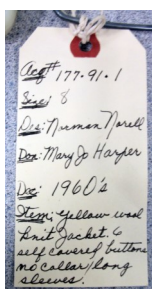 Acq# 177-91-1
Size: 8
Des: Norman Norell
Don: Mary Jo Harper
Dec: 1960's
Item: Yellow wool
knit jacket. 6
self covered buttons
no collar/long
sleeves.